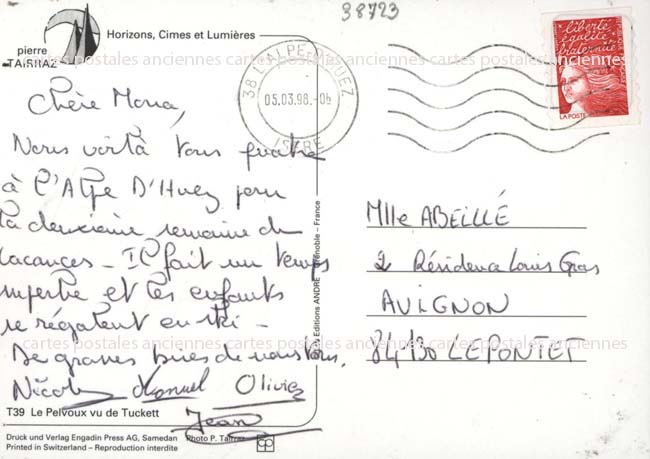 38723
Horizons, Cimes et Lumières
pierre
TAIRRAZ
38 L'ALPE-D'HUEZ
05.03.98.-06
ISERE
liberté
égalité
fraternité
LA POSTE
cartes postales anciennes cartes postales anciennes cartes postales anciennes
Chère Mona,
Nous voilà tous quatre
à l'Alpe D'Huez pour
la deuxième semaine de
vacances - Il fait un temps
superbe et les enfants
se régalent en ski -
De grosses bises de nous tous.
Nicole Manuel Olivier
Jean
Editions ANDRE Grenoble - France
Mlle ABEILLÉ
2 Résidence Louis Gros
AVIGNON
84130 LE PONTET
cartes postales anciennes cartes postales anciennes cartes postales anciennes
T39 Le Pelvoux vu de Tuckett
Druck und Verlag Engadin Press AG, Samedan Photo P. Tairraz
Printed in Switzerland - Reproduction interdite